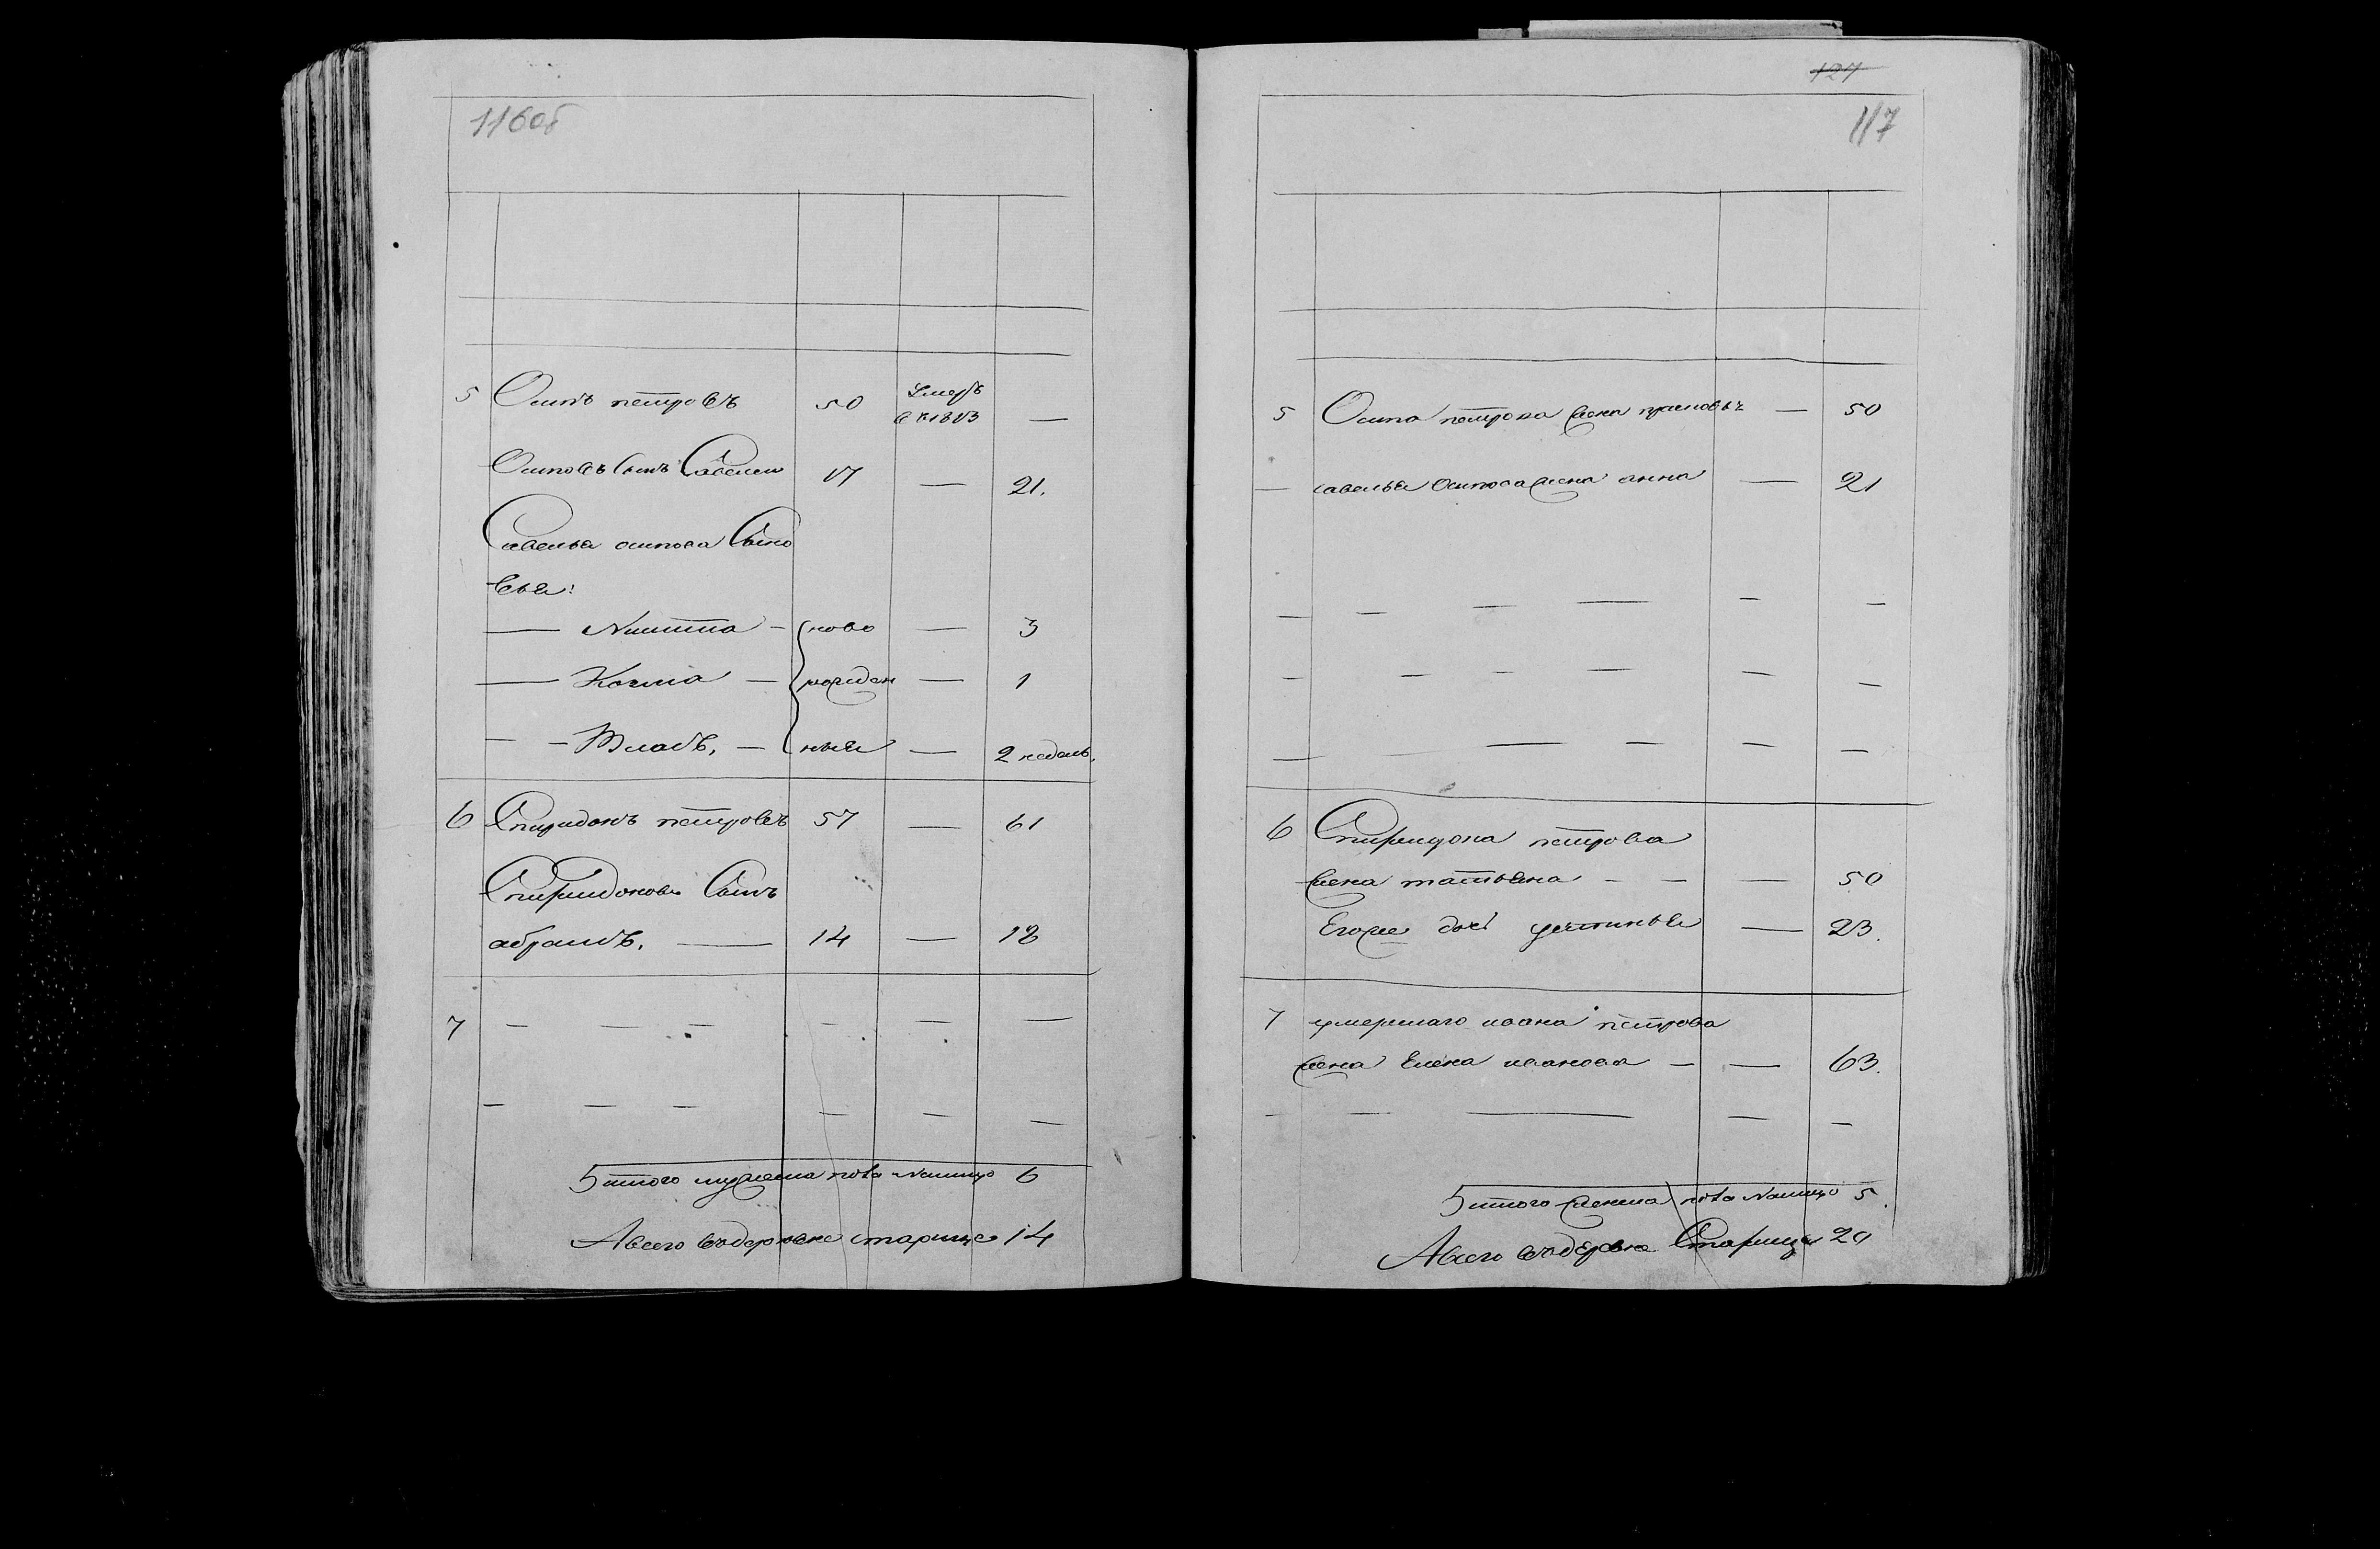 116об
5 Осипъ петровъ 50 Умеръ въ 1813 —
Осиповъ Сынъ Савелеи 17 — 21.
Савелья осипова Сыно
вья:
— Никита — ново — 3
— Козма — рожден — 1
— — Власъ, — ныя — 2 недель.
6 Спиридонъ петровъ 57 — 61
Спиридоновъ Сынъ
абрамъ. — 14 — 18
7 — — — — — —
— — — — — —
итого мужеска пола налицо 6
А всего вдеревне старице 14
127
117
5 Осипа петрова жена прасковья — 50
— савелья Осипова жена анна — 21
— — — — — —
— — — — — —
— — — — —
6 Спиридона петрова
жена татьяна — — — 50
Егоже дочь устинья — 23.
7 умершаго ивана петрова
жена Елена иванова — — 63.
— — — — —
итого женска пола налицо 5.
А всего вдеревне Старице 20